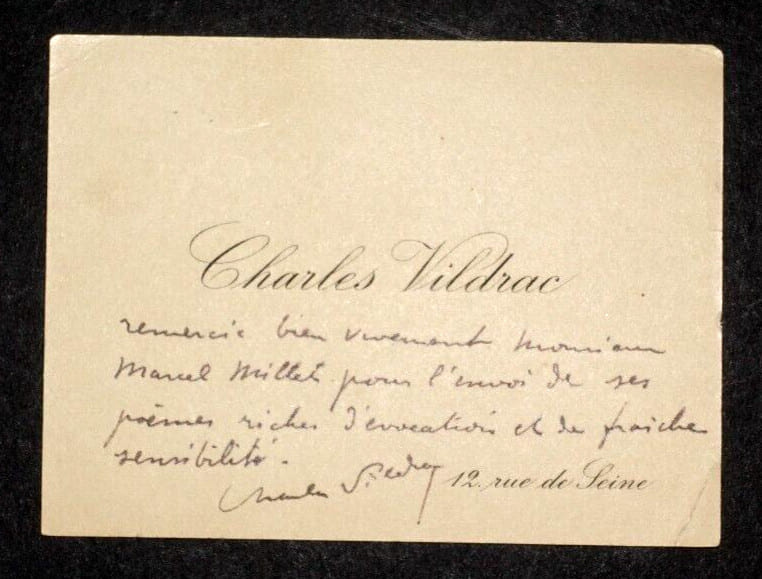 Charles Vildrac
remercie bien vivement Monsieur
Marcel Millet pour l'envoi de ses
poèmes riches d'évocations et de fraîche
sensibilité.
Charles Vildrac
12, rue de Seine